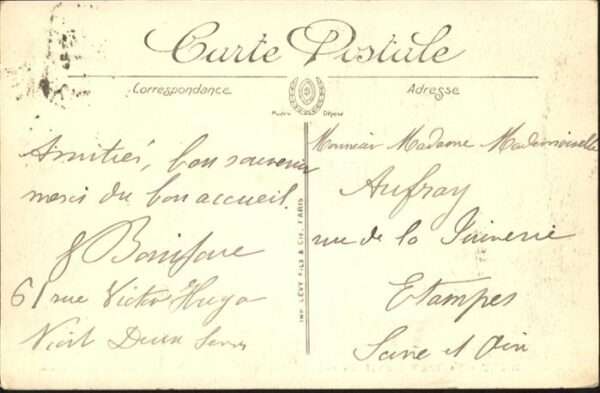 Carte Postale
Correspondance
Adresse
Modèle Déposé
Amitiés, bon souvenir
merci du bon accueil.
61 rue Victor Hugo
Niort Deux Sevres
IMP. LÉVY FILS & CIE, PARIS
Monsieur Madame Mademoiselle
Aufray
rue de la Juiverie
Etampes
Seine et Oise